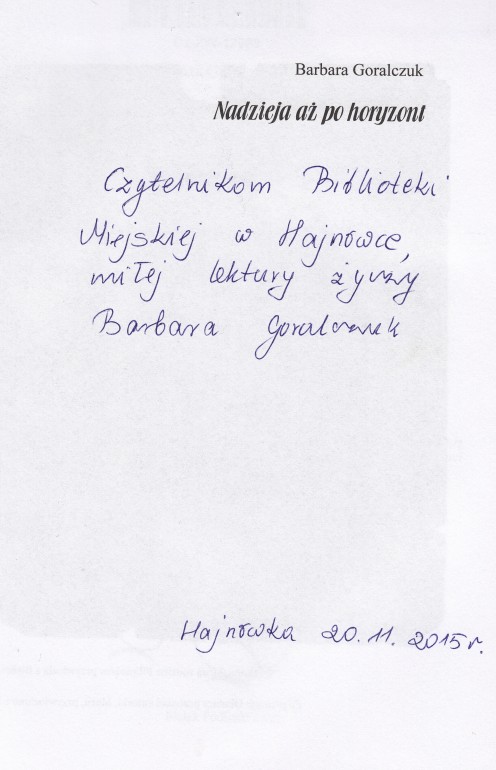 Barbara Goralczuk
Nadzieja aż po horyzont
Czytelnikom Biblioteki
Miejskiej w Hajnówce,
miłej lektury życzy
Barbara Goralczuk
Hajnówka 20.11.2015r.